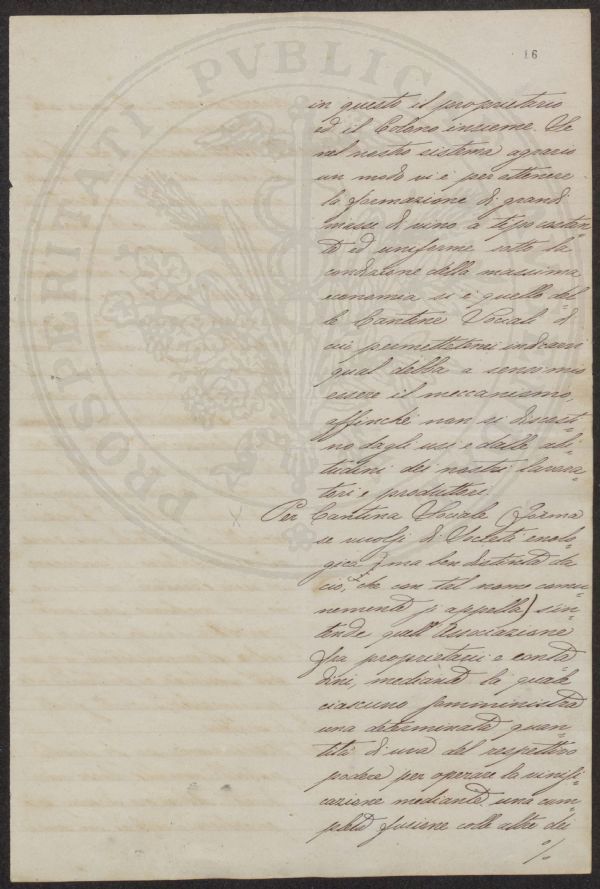 16
PROSPERITATI PVBLICAE
in questo il proprietario
ed il Colono insieme. Se
nel nostro sistema agrario
un modo vi è per ottenere
la formazione di grandi
masse di vino a tipo costan-
te ed uniforme sotto la
condizione della massima
economia si è quello del-
le Cantine Sociali di
cui permettetemi indicarvi
qual debba a senso mio
essere il meccanismo,
affinché non si discosti-
no dagli usi e dalle abi-
tudini dei nostri lavora-
tori e produttori.
Per Cantina Sociale (forma
se vuolsi di Società enolo-
gica, ma ben distinta da
ciò, che con tal nome comu-
nemente si appella) s'in-
tende quell'Associazione
fra proprietarii e conta-
dini, mediante la quale
ciascuno somministra
una determinata quan-
tità di uva del respettivo
podere per operare la vinifi-
cazione mediante una com-
pleta fusione colle altre dei
%